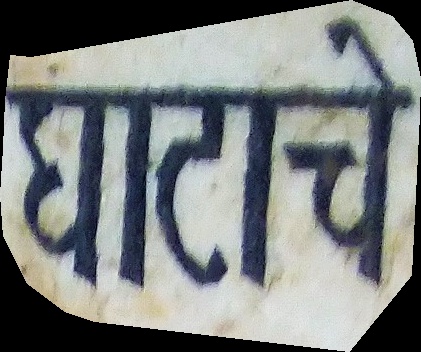 घाटाचे